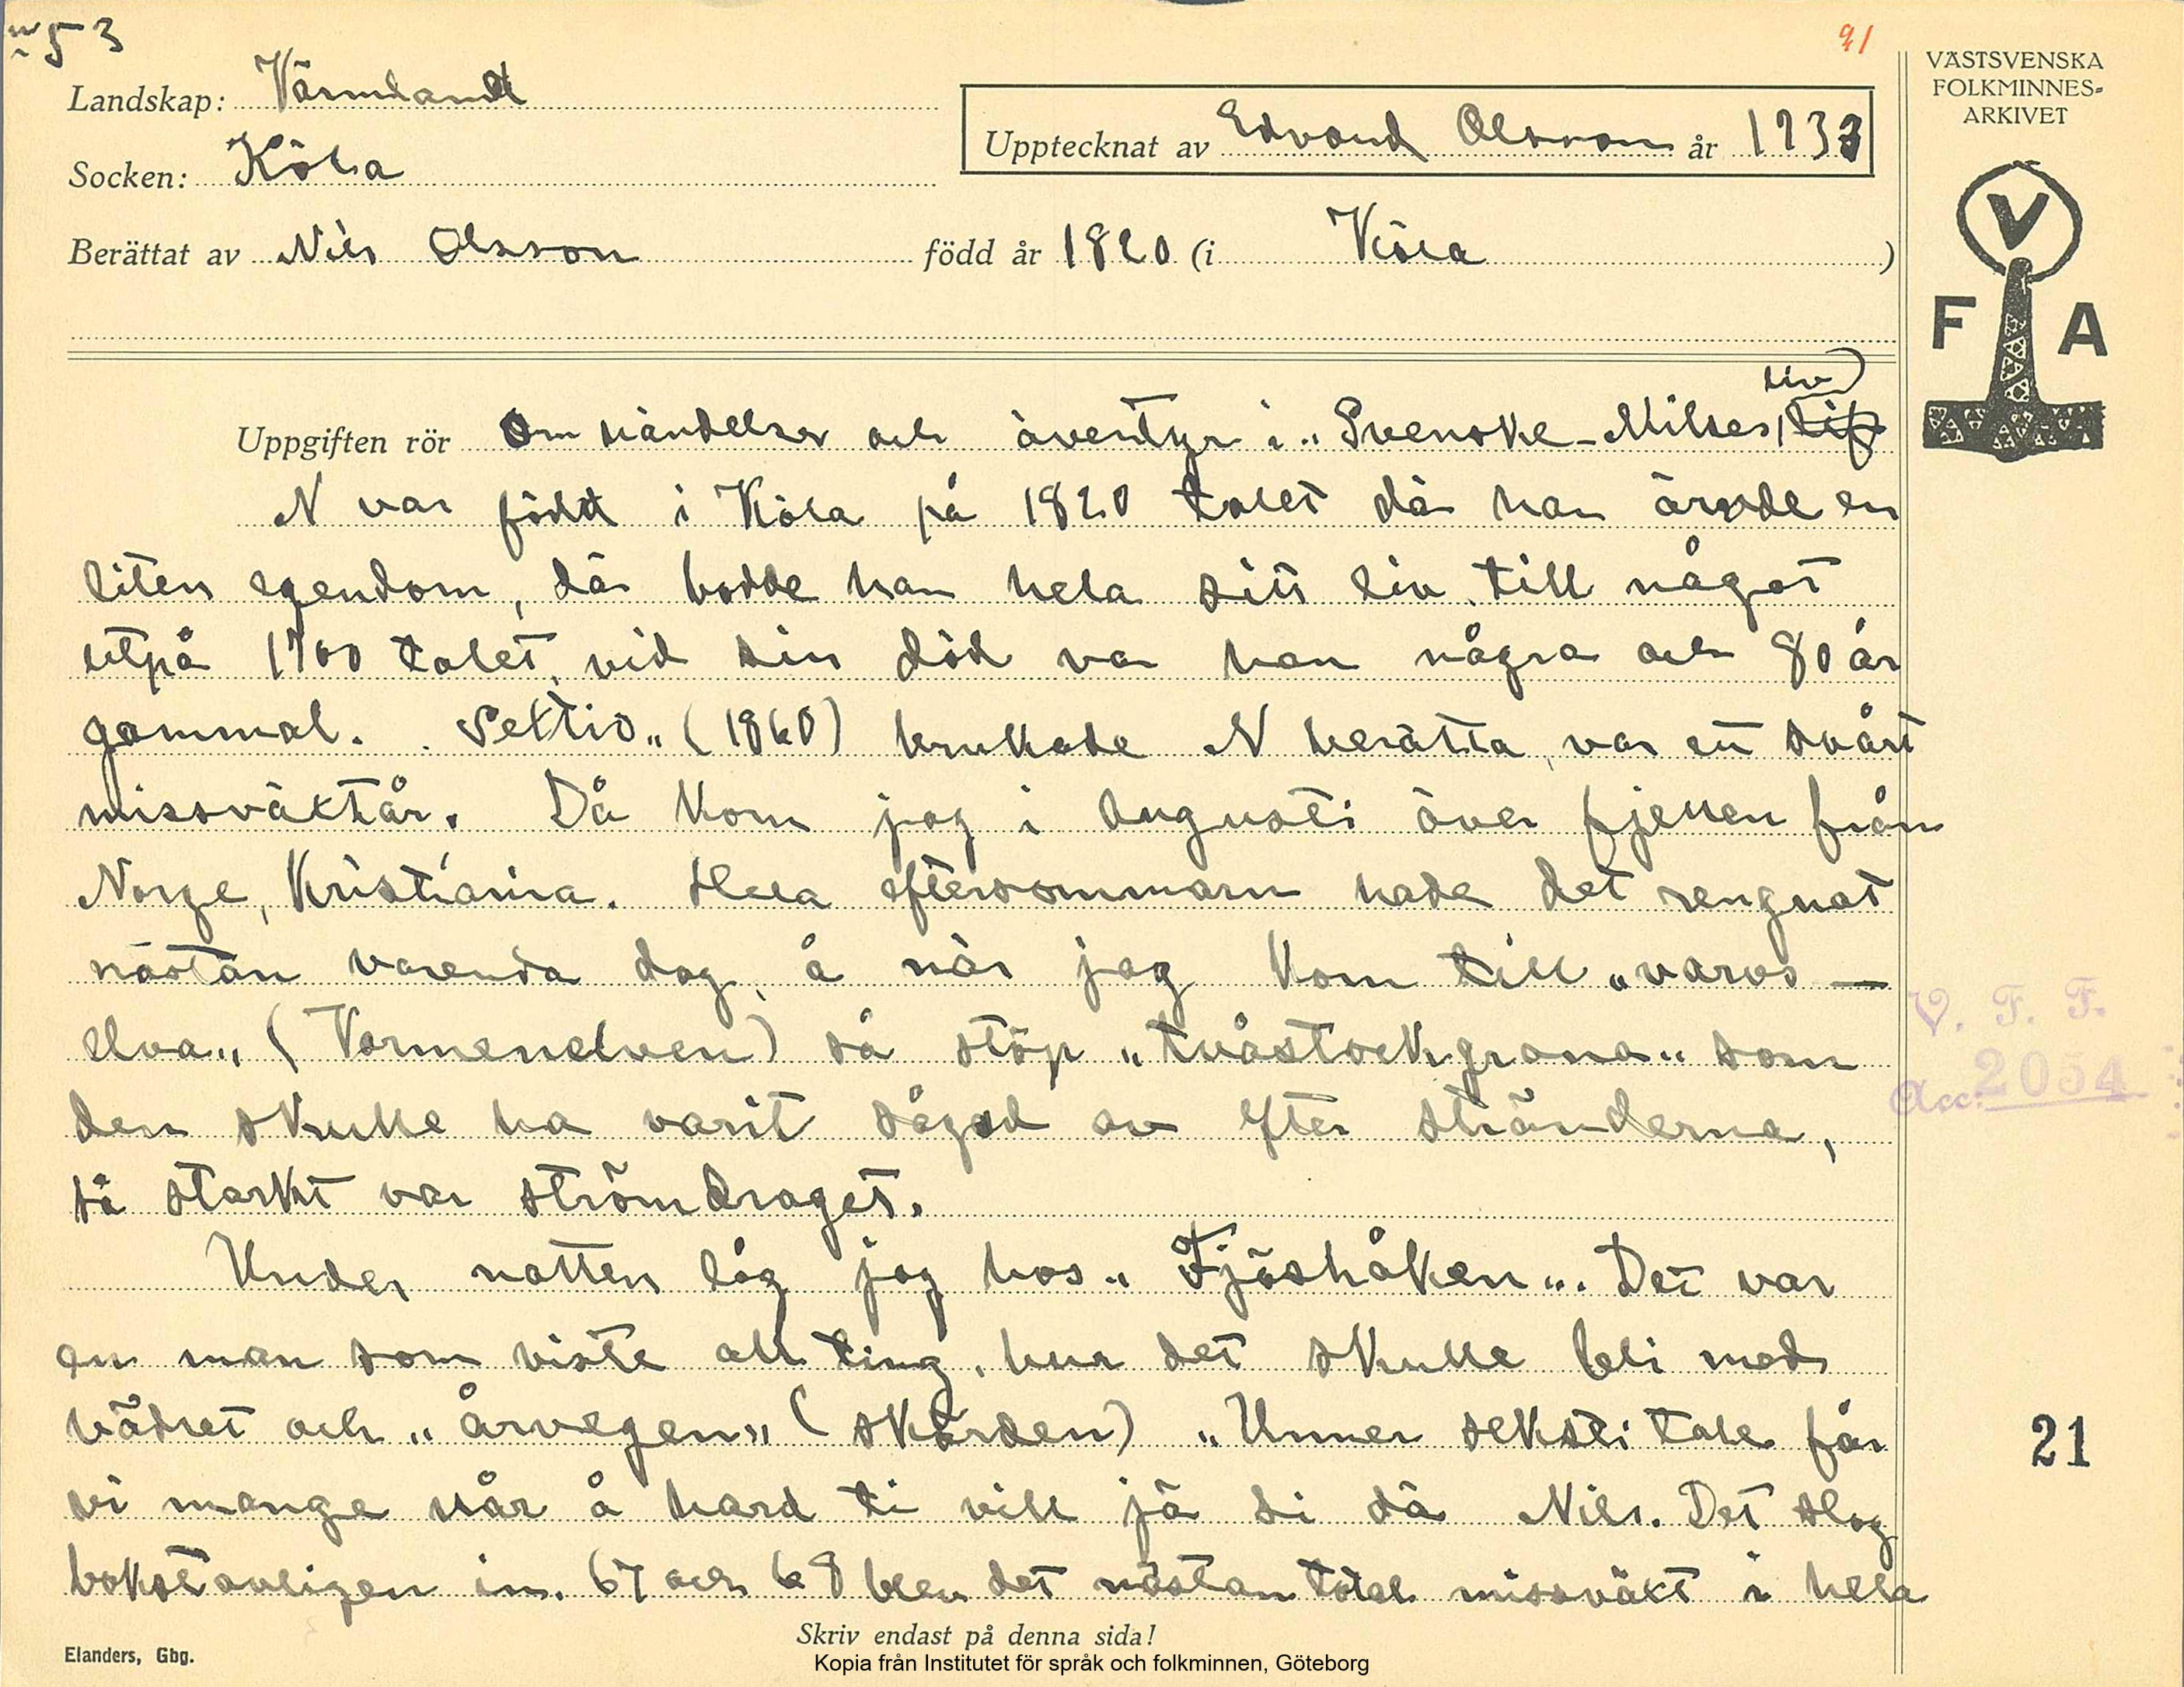 nr 53
91
Landskap: Värmland
Socken: Köla
Upptecknat av Edvard Olsson år 1933
Berättat av Nils Olsson född år 1820 (i Köla)
VÄSTSVENSKA
FOLKMINNES-
ARKIVET
V
F A
liv)
Uppgiften rör Om händelser och äventyr i „Svenske-Nilses lif
N var född i Köla på 1820 talet där han ärvde en
liten egendom, där bodde han hela sitt liv till något
utpå 1900 talet, vid sin död var han några och 80 år
gammal. „Sekstio„ (1860) brukade N berätta, var ett svårt
missväxtår. Då kom jag i augusti över fjellen från
Norge, Kristiania. Hela eftersommarn hade det rengnat
nästan varenda dag, å när jag kom till „varvs —
elva„ (Vormenelven) så stöp „tvåstockgrana„ som
den skulle ha varit sågad av efter stränderna,
så starkt var strömdraget.
Under natten låg jag hos „Fjöshåken„. Det var
en man som viste all ting, hur det skulle bli med
vädret och „årvegen„ (skörden) „Unner seksti tale får
vi mange når å hard ti vill jä si dä Nils. Det slog
bokstavligen in. 67 och 68 blev det nästan total missväxt i hela
V. F. F.
Acc: 2054
21
Skriv endast på denna sida!
Elanders, Gbg.
Kopia från Institutet för språk och folkminnen, Göteborg